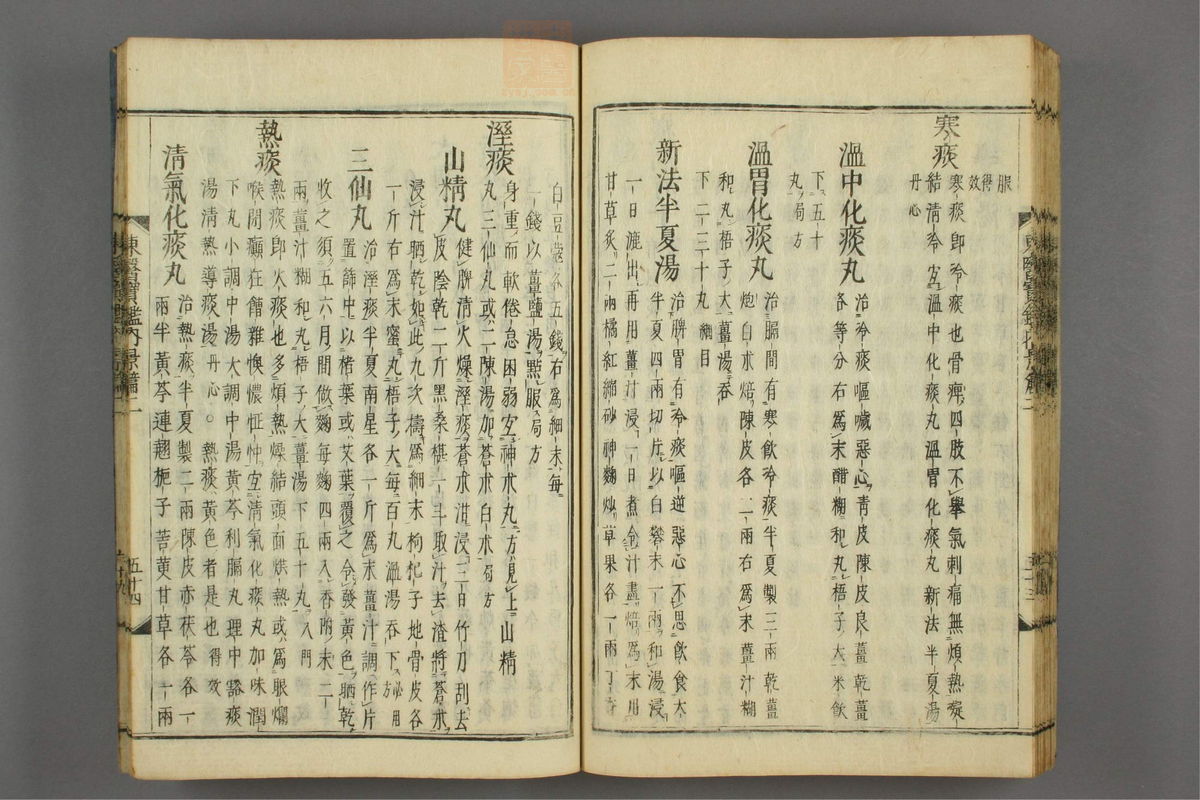 服
得
效
寒痰
寒痰卽冷痰也骨痺四肢不擧氣刺痛無煩熱凝
結清冷宜溫中化痰丸溫胃化痰丸新法半夏湯
丹心
溫中化痰丸
治冷痰嘔噦惡心靑皮陳皮良薑乾薑
各等分右爲末醋糊和丸梧子大米飮
下五十
丸局方
溫胃化痰丸
治膈間有寒飮冷痰半夏製三兩乾薑
炮白朮焙陳皮各二兩右爲末薑汁糊
和丸梧子大薑湯吞
下二三十丸綱目
新法半夏湯
治脾胃有冷痰嘔逆惡心不思飮食大
半夏四兩切片以白礬末一兩和湯浸
一日漉出再用薑汁浸一日煮令汁盡焙爲末用
甘草炙二兩橘紅縮砂神麴炒草果各一兩丁香
白豆蔲各五錢右爲細末每
一錢以薑鹽湯點服局方
濕痰
身重而軟倦怠困弱宜神朮丸方見上山精
丸三仙丸或二陳湯加蒼朮白朮局方
山精丸
健脾清火燥濕痰蒼朮泔浸三日竹刀刮去
皮陰乾二斤黑桑椹一斗取汁去渣將蒼朮
浸汁晒乾如此九次擣爲細末枸杞子地骨皮各
一斤右爲末蜜丸梧子大每百丸溫湯吞下必用方
三仙丸
治濕痰半夏南星各一斤爲末薑汁調作片
置篩中以楮葉或艾葉覆之令發黃色晒乾
收之須五六月間做麴每麴四兩入香附末二
兩薑汁糊和丸梧子大薑湯下五十丸入門
熱痰
熱痰卽火痰也多煩熱燥結頭面烘熱或爲眼爛
喉閉癲狂嘈雜懊憹怔忡宜清氣化痰丸加味潤
下丸小調中湯大調中湯黃芩利膈丸理中豁痰
湯清熱導痰湯丹心○熱痰黃色者是也得效
清氣化痰丸
治熱痰半夏製二兩陳皮赤茯苓各一
兩半黃芩連翹梔子苦莄甘草各一兩
東醫寶鑑內景篇二
五十四